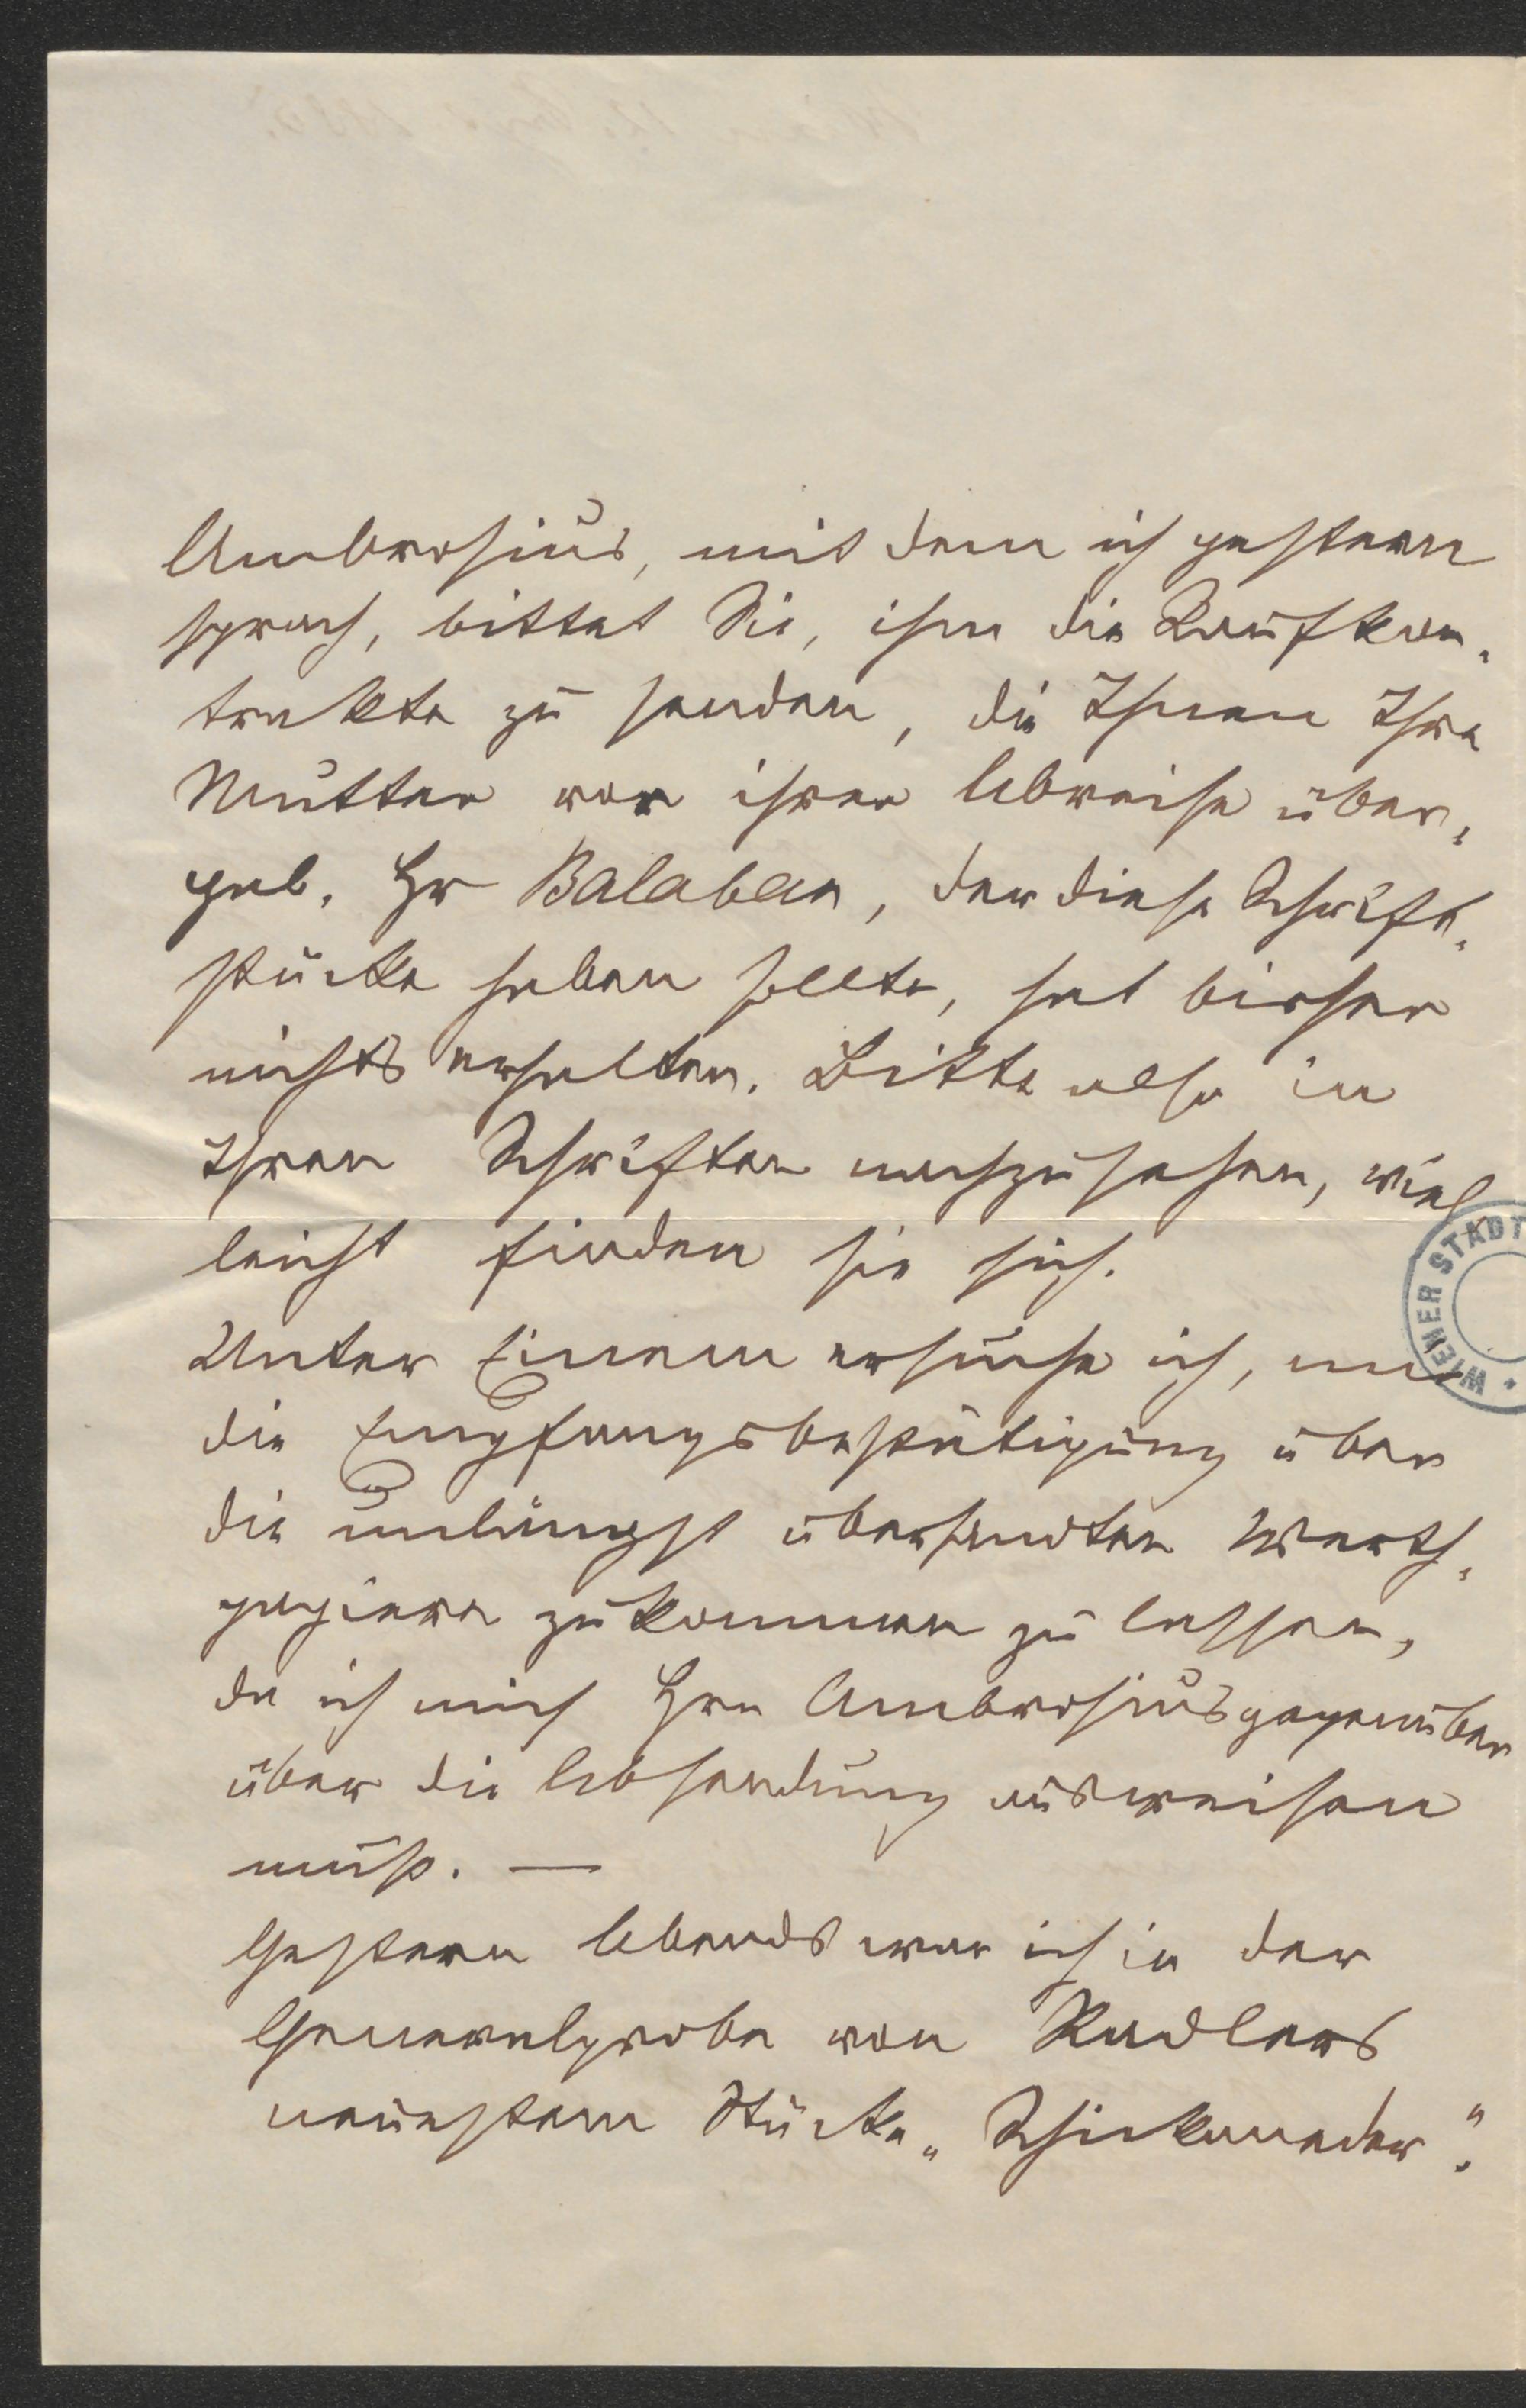 Ambrosius, mit dem ich gestern
sprach, bittet Sie, ihm die Kaufkon-
trakte zu senden, die Ihnen Ihre
Mutter vor ihrer Abreise über-
gab. Hr Balaban, der diese Schrift-
stücke haben sollte, hat bisher
nichts erhalten. Bitte also in
Ihren Schriften nachzusehen, viel
leicht finden sie sich.
Unter Einem ersuche ich, mir
die Empfangsbestätigung über
die unlängst übersandten Werth-
papiere zukommen zu lassen,
da ich mich Hrn Ambrosius gegenüber
über die Absendung ausweisen
muß. —
Gestern Abends war ich in der
Generalprobe von Kadlers
neuestem Stücke „Schikaneder".
WIENER STADT